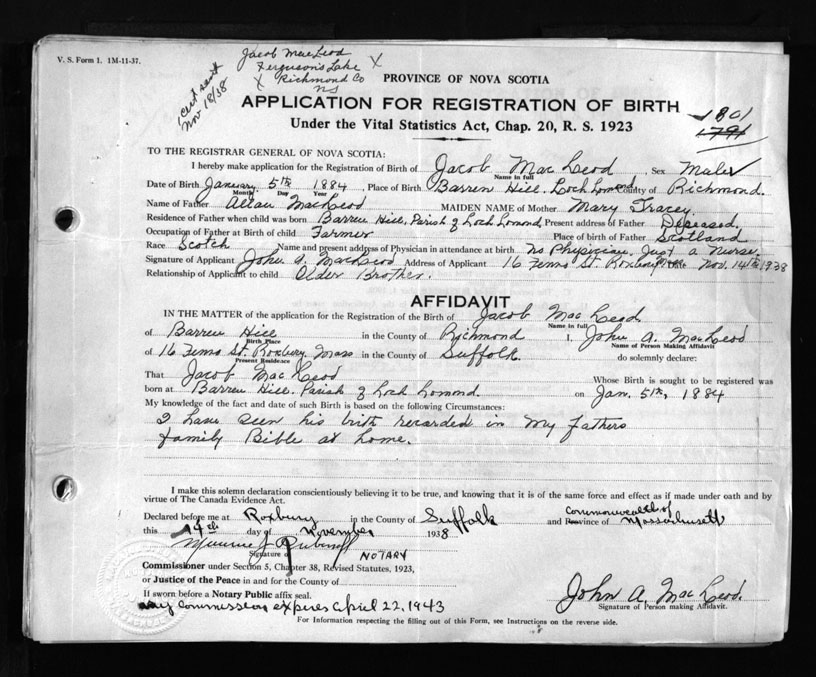 V. S. Form 1. 1M-11-37.
Jacob MacLeod
Ferguson's Lake X
X Richmond Co
NS
1 Cert sent
Nov 18/38
PROVINCE OF NOVA SCOTIA
APPLICATION FOR REGISTRATION OF BIRTH
Under the Vital Statistics Act, Chap. 20, R. S. 1923
1801
1791
TO THE REGISTRAR GENERAL OF NOVA SCOTIA:
I hereby make application for the Registration of Birth of Jacob MacLeod, Sex Male
Name in full
Date of Birth January 5th 1884, Place of Birth Barren Hill, Loch Lomond County of Richmond.
Month Day Year
Name of Father Allan MacLeod MAIDEN NAME of Mother Mary Tracey.
Residence of Father when child was born Barren Hill, Parish of Loch Lomond, Present address of Father Deceased.
Occupation of Father at Birth of child Farmer Place of birth of Father Scotland
Race Scotch Name and present address of Physician in attendance at birth No Physician, Just a Nurse.
Signature of Applicant John A. MacLeod Address of Applicant 16 St. Roxbury Mass Date Nov. 14th 1938
Relationship of Applicant to child Older Brother.
AFFIDAVIT
IN THE MATTER of the application for the Registration of the Birth of Jacob MacLeod
Name in full
of Barren Hill in the County of Richmond I, John A. MacLeod
Birth Place Name of Person Making Affidavit
of 16 St. Roxbury Mass in the County of Suffolk. do solemnly declare:
Present Residence
That Jacob MacLeod Whose Birth is sought to be registered was
born at Barren Hill, Parish of Loch Lomond. on Jan. 5th, 1884
My knowledge of the fact and date of such Birth is based on the following Circumstances:
I have seen his birth recorded in my fathers
family Bible at home.
I make this solemn declaration conscientiously believing it to be true, and knowing that it is of the same force and effect as if made under oath and by
virtue of The Canada Evidence Act.
Commonwealth of
Declared before me at Roxbury in the County of Suffolk and Province of Massachusetts
this 14th day of November 1938
Signature of NOTARY
Commissioner under Section 5, Chapter 38, Revised Statutes, 1923,
or Justice of the Peace in and for the County of
If sworn before a Notary Public affix seal.
John A. MacLeod.
My commission expires April 22, 1943
Signature of Person making Affidavit.
For Information respecting the filling out of this Form, see Instructions on the reverse side.